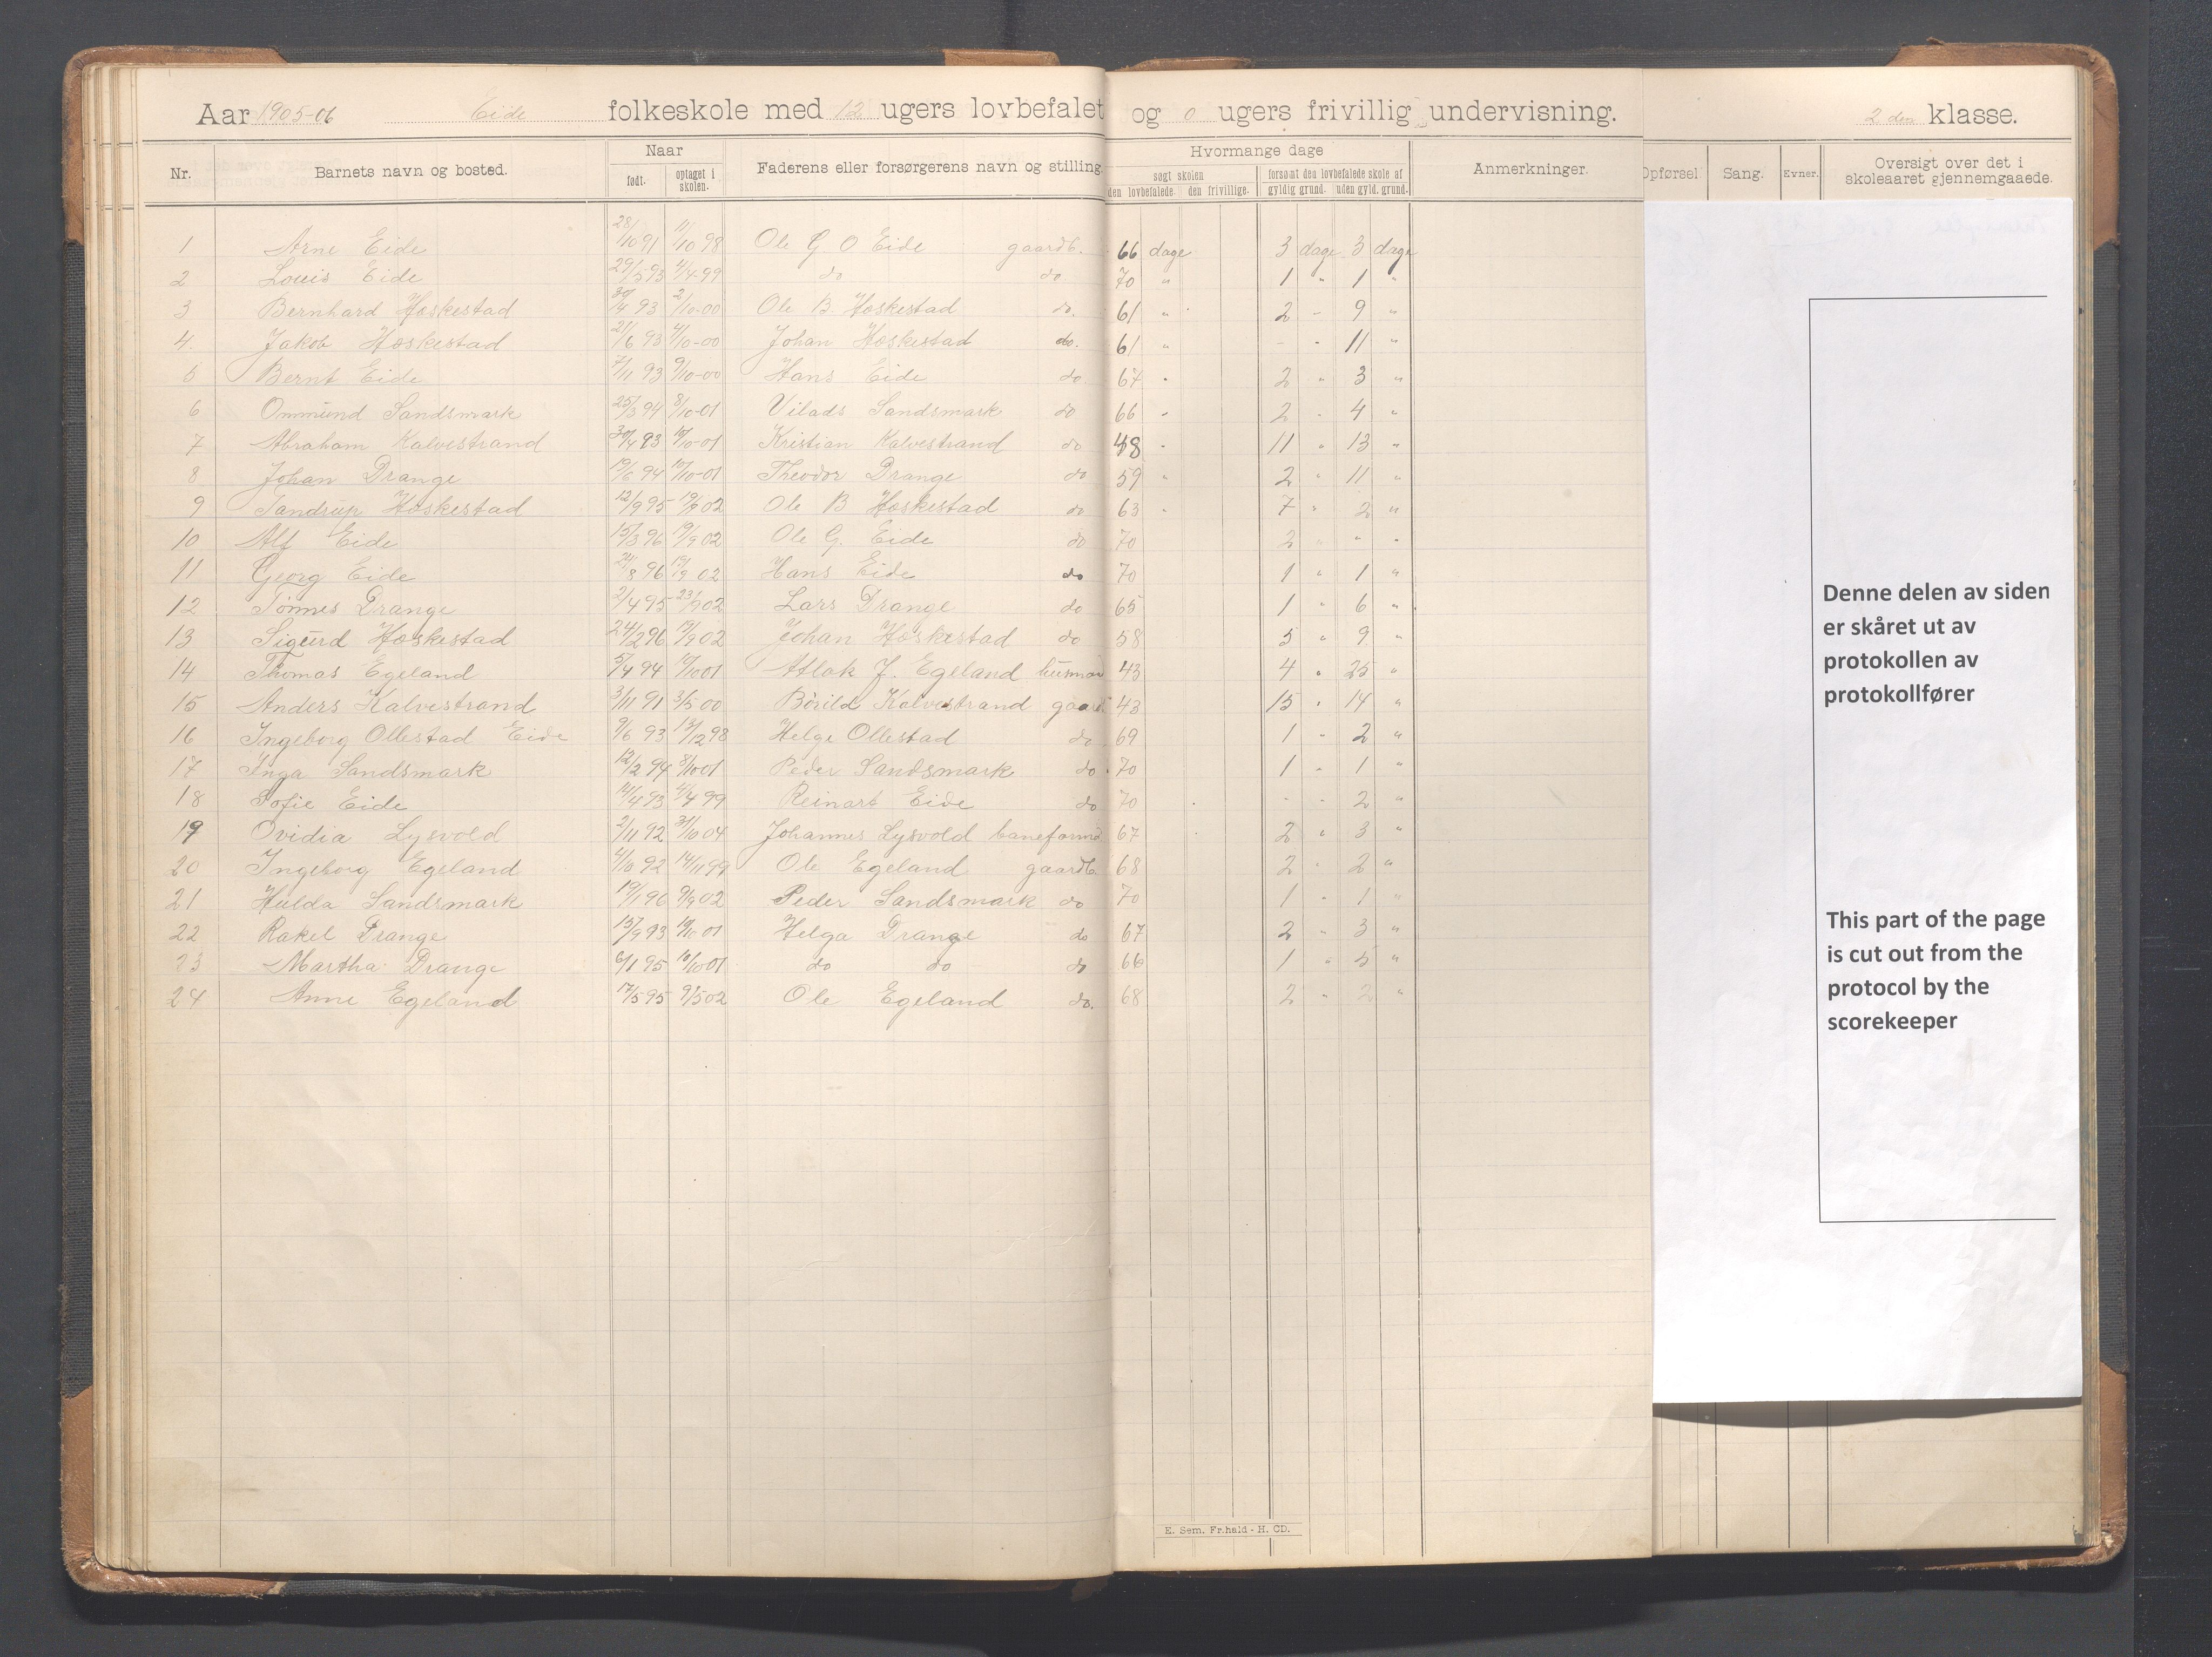 Aar 1905-06 Eide folkeskole med 12 ugers lovbefalet og 0 ugers frivillig undervisning. 2 den klasse.
Nr. Barnets navn og bosted. Naar født. optaget i skolen. Faderens eller forsørgerens navn og stilling. Hvormange dage søgt skolen den lovbefalede. den frivillige. forsømt den lovbefalede skole af gyldig grund. uden gyld. grund. Anmerkninger. Opførsel. Sang. Evner. Oversigt over det i skoleaaret gjennemgaaede.
1 Arne Eide 28/10 91 11/10 98 Ole G O Eide gaardb. 66 dage 3 dage 3 dage
2 Louis Eide 4/4-99 do do 70 " 1 " 1 "
3 Bernhard Hoskestad 30/4 93 2/10-00 Ole B. Hoskestad do. 61 " 2 " 9 "
4. Jakob Hoskestad 21/6 93 4/10-00 Johan Hoskestad do. 61 " - " 11 "
5 Bernt Eide 93 9/10-00 Hans Eide do. 67 " 2 " 3 "
6 Ommund Sandsmark 25/3 94 8/10-01 Vilads Sandsmark do 66 " 2 " 4 "
7 Abraham Kalvestrand 30/4 93 10/10-01 Kristian Kalvestrand do 48 " 11 " 13 "
8 Johan Drange 19/6 94 10/10-01 Theodor Drange do 59 " 2 " 11 "
9 Tandrup Hoskestad 12/9 95 02 Ole B Hoskestad do 63 " 7 " 2 "
10 Alf Eide 15/3 96 19/9 02 Ole G. Eide do 70 2 " " "
11 Georg Eide 8 96 19/9 02 Hans Eide do 70 1 " 1 "
12 Tönnes Drange 2/4 95 02 Lars Drange do 65 1 " 6 "
13 Sigurd Hoskestad 24/2 96 19/9 02 Johan Hoskestad do 58 5 " 9 "
14 Thomas Egeland 5/4 94 10/10 01 Atlak J. Egeland 43 4 " 25 "
15 Anders Kalvestrand 3/11 91 3/5 00 Börild Kalvestrand 43 15 " 14 "
16 Ingeborg Ollestad Eide 9/6 93 13/12 98 Helge Ollestad do 69 1 " 2 "
17 Inga Sandsmark 12/2 94 8/10 01 Peder Sandsmark do 70 1 " 1 "
18 Sofie Eide 14/4 93 4/4 99 Reinart Eide do 70 - - 2 "
19 Ovidia Lysvold 2/11 92 31/10 04 Johannes Lysvold baneformd 67 2 " 3 "
20 Ingeborg Egeland 4/10 92 14/11 99 Ole Egeland gaardb. 68 2 " 2 "
21 Hulda Sandsmark 19/1 96 9/9 02 Peder Sandsmark do 70 1 " 1 "
22 Rakel Drange 15/9 93 10/10 01 Helga Drange do 67 2 " 3 "
23 Martha Drange 6/1 95 10/10 01 do do do 66 1 " 5 "
24 Anne Egeland 17/5 95 9/5 02 Ole Egeland do. 68 2 " 2 "
E. Sem. Fr.hald - H. CD.
Denne delen av siden
er skåret ut av
protokollen av
protokollfører
This part of the page
is cut out from the
protocol by the
scorekeeper